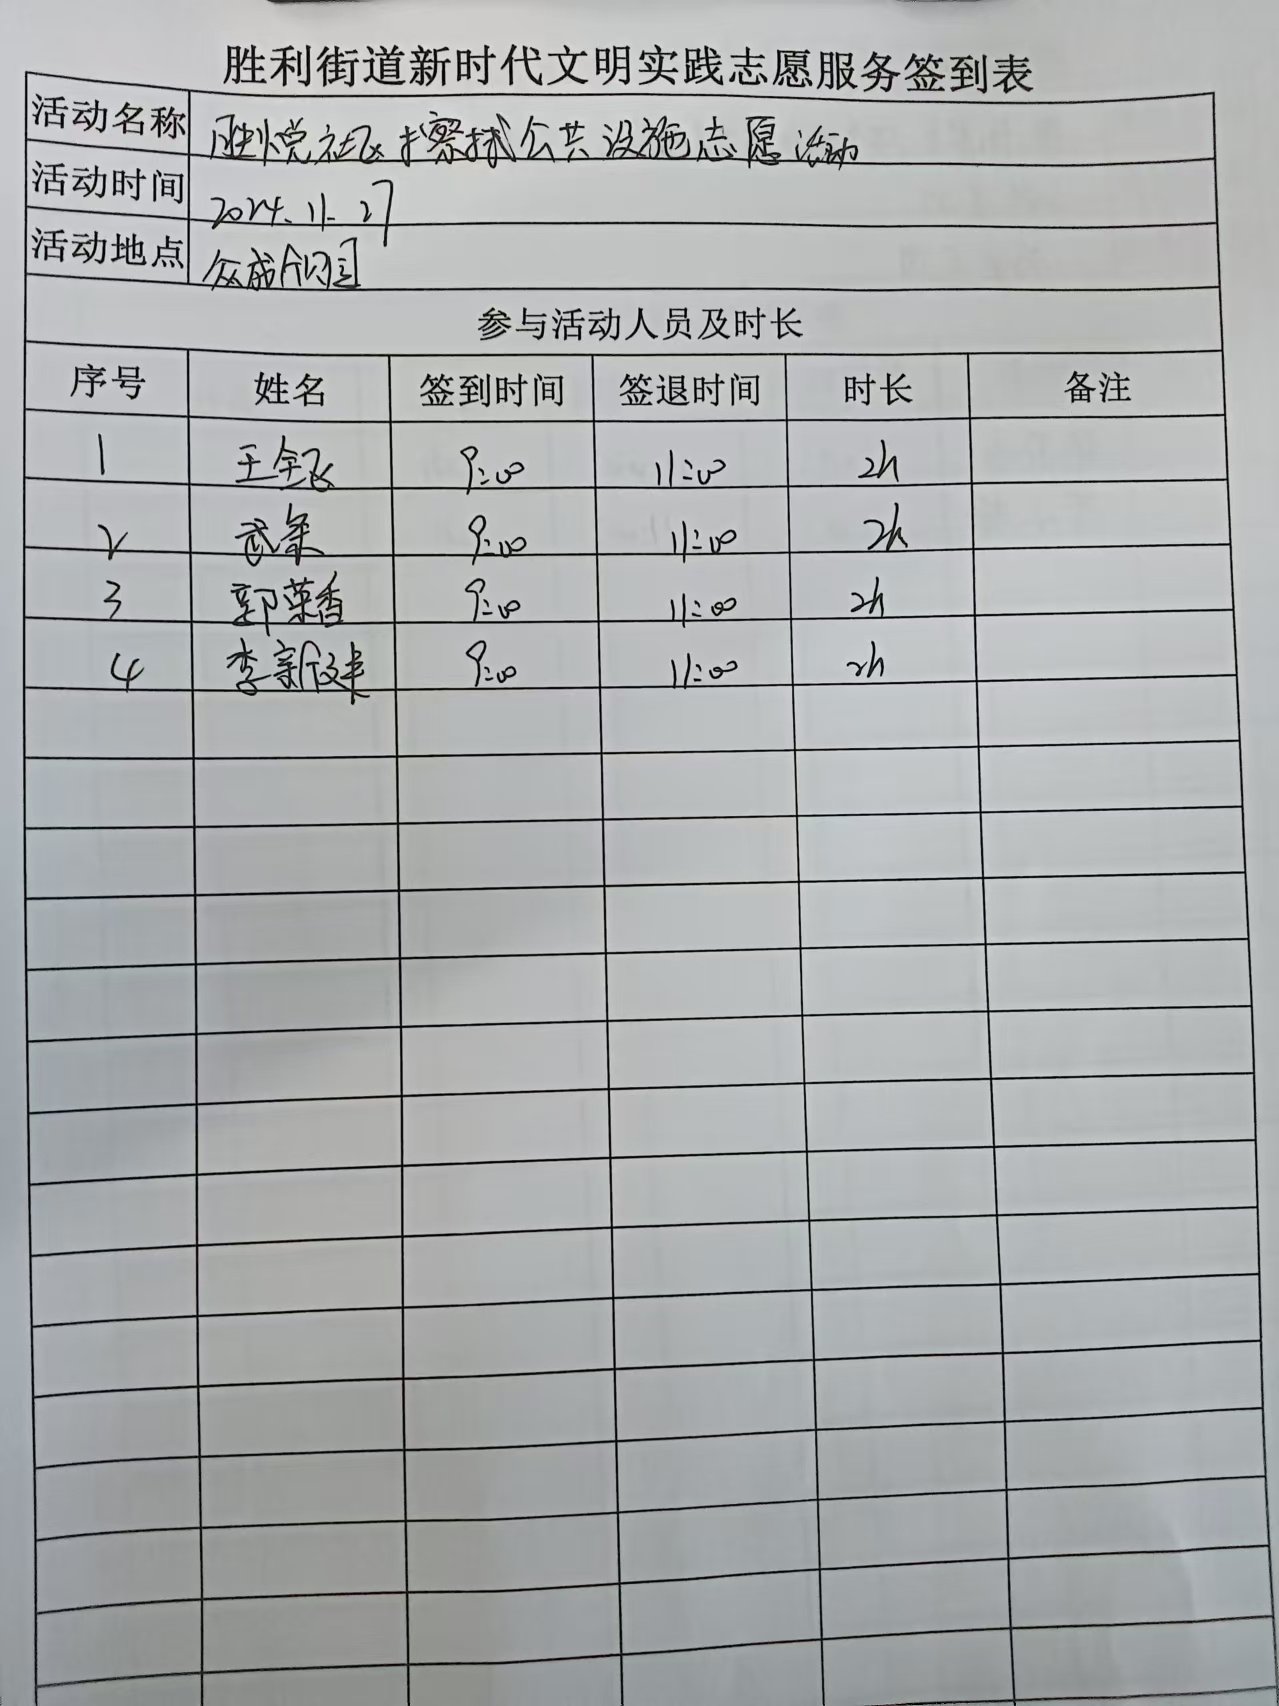 胜利街道新时代文明实践志愿服务签到表
活动名称 胜悦社区擦拭公共设施志愿活动
活动时间 2024.11.27
活动地点 众成佰园
参与活动人员及时长
序号 姓名 签到时间 签退时间 时长 备注
1 王全飞 9:00 11:00 2h
2 武 9:00 11:00 2h
3 郭荣香 9:00 11:00 2h
4 李新 9:00 11:00 2h